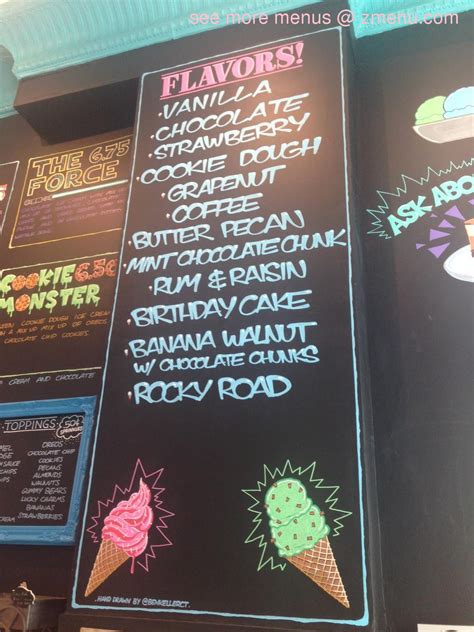 see more menus @ zmenu.com
FLAVORS!
·VANILLA
·CHOCOLATE
·STRAWBERRY
·COOKIE DOUGH
·GRAPENUT
·COFFEE
·BUTTER PECAN
·MINT CHOCOLATE CHUNK
·RUM & RAISIN
·BIRTHDAY CAKE
·BANANA WALNUT
W/ CHOCOLATE CHUNKS
·ROCKY ROAD
HAND DRAWN BY @BENKELLERCT.
THE 6.75
FORCE
COOKIE 6.50
MONSTER
COOKIE DOUGH ICE CREAM
CHOCOLATE CHIP COOKIES
CREAM AND CHOCOLATE
TOPPINGS 50¢
OREOS
CHOCOLATE CHIP
COOKIES
PECANS
ALMONDS
WALNUTS
GUMMY BEARS
LUCKY CHARMS
BANANAS
STRAWBERRIES
ASK ABO